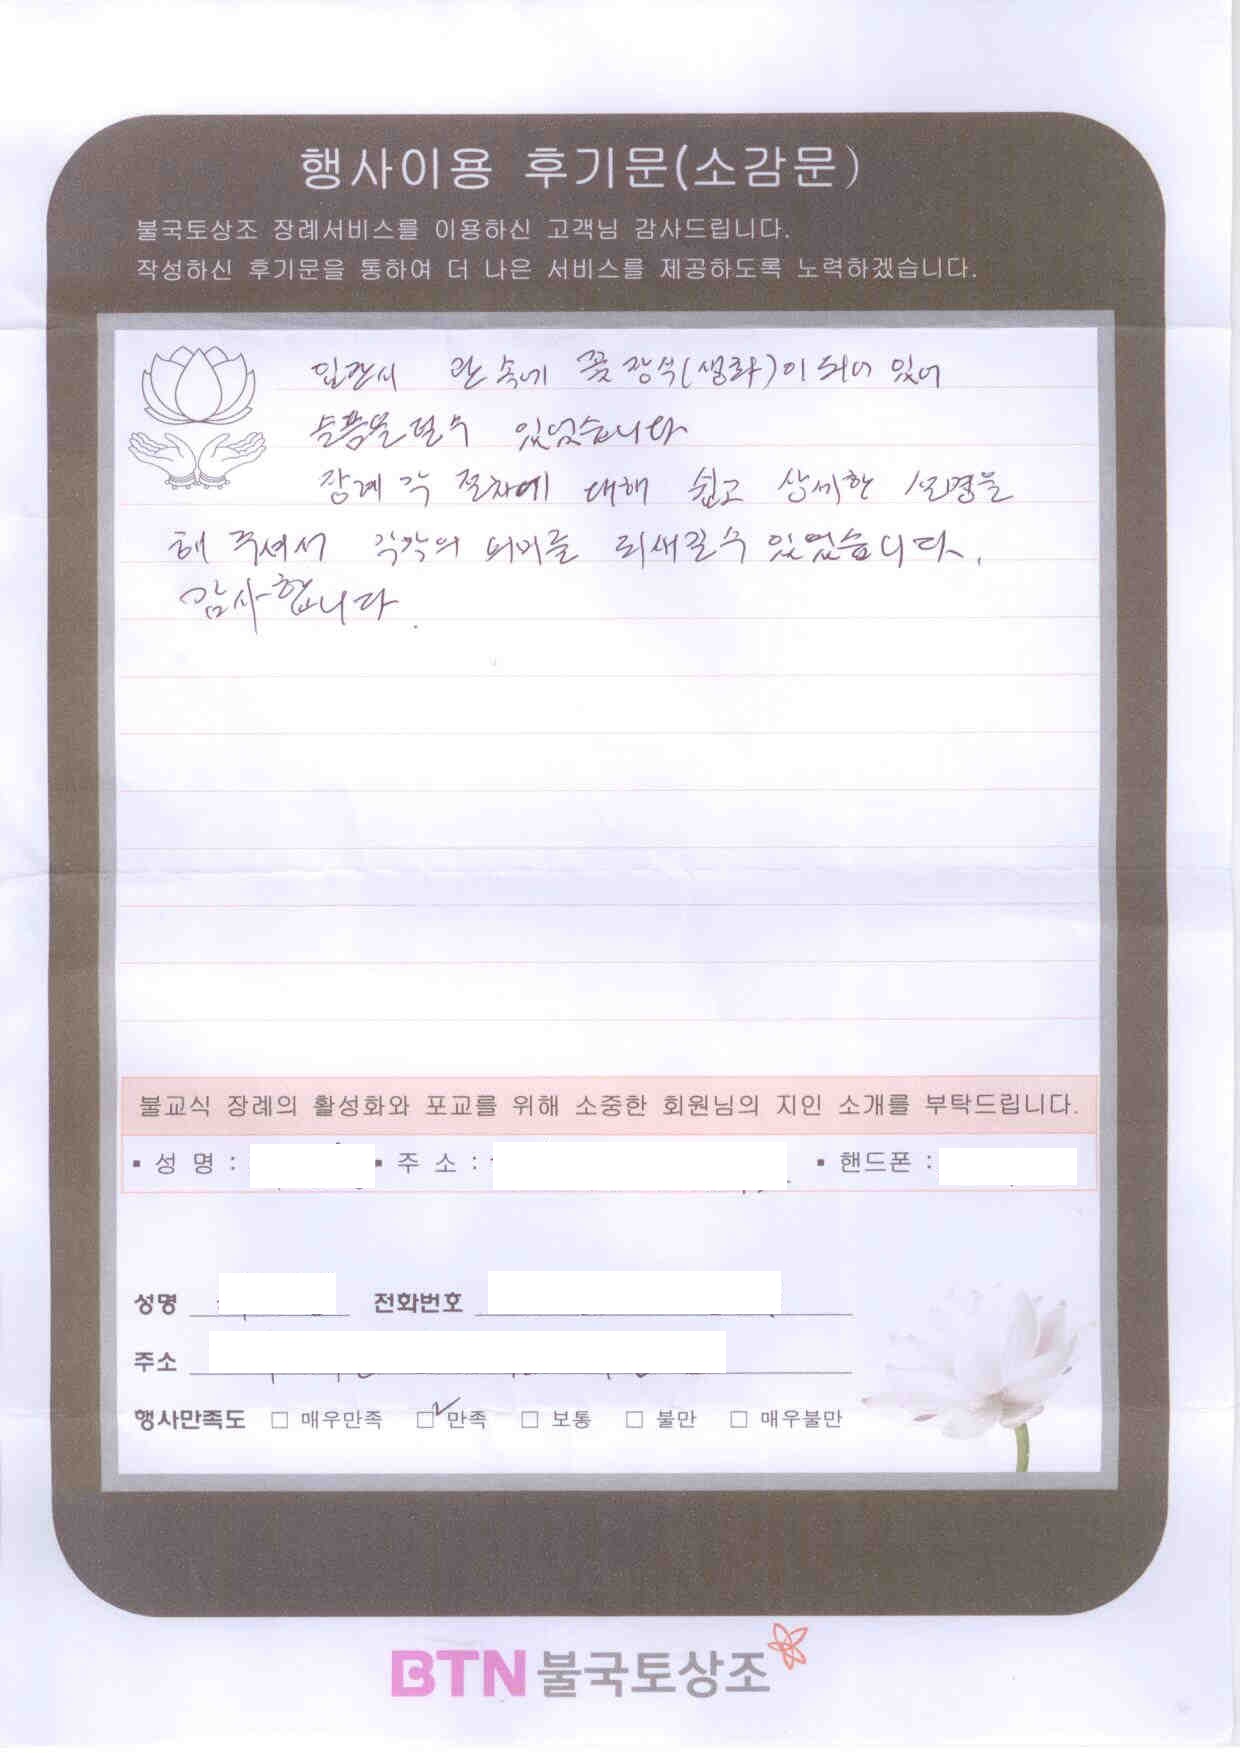 행사이용 후기문(소감문)
불국토상조 장례서비스를 이용하신 고객님 감사드립니다.
작성하신 후기문을 통하여 더 나은 서비스를 제공하도록 노력하겠습니다.
입관시 관 속에 꽃장식(생화)이 되어 있어
슬픔을 덜 수 있었습니다
장례 각 절차에 대해 쉽고 상세한 설명을
해 주셔서 각각의 의미를 되새길 수 있었습니다.
감사합니다.
불교식 장례의 활성화와 포교를 위해 소중한 회원님의 지인 소개를 부탁드립니다.
▪ 성 명 : ▪ 주 소 : ▪ 핸드폰 :
성명 전화번호
주소
행사만족도 □ 매우만족 ☑ 만족 □ 보통 □ 불만 □ 매우불만
BTN 불국토상조